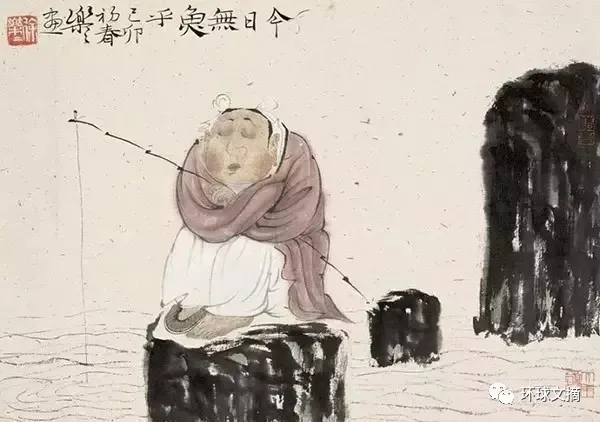 今日無魚乎
己卯
初春
樂〻画
环球文摘